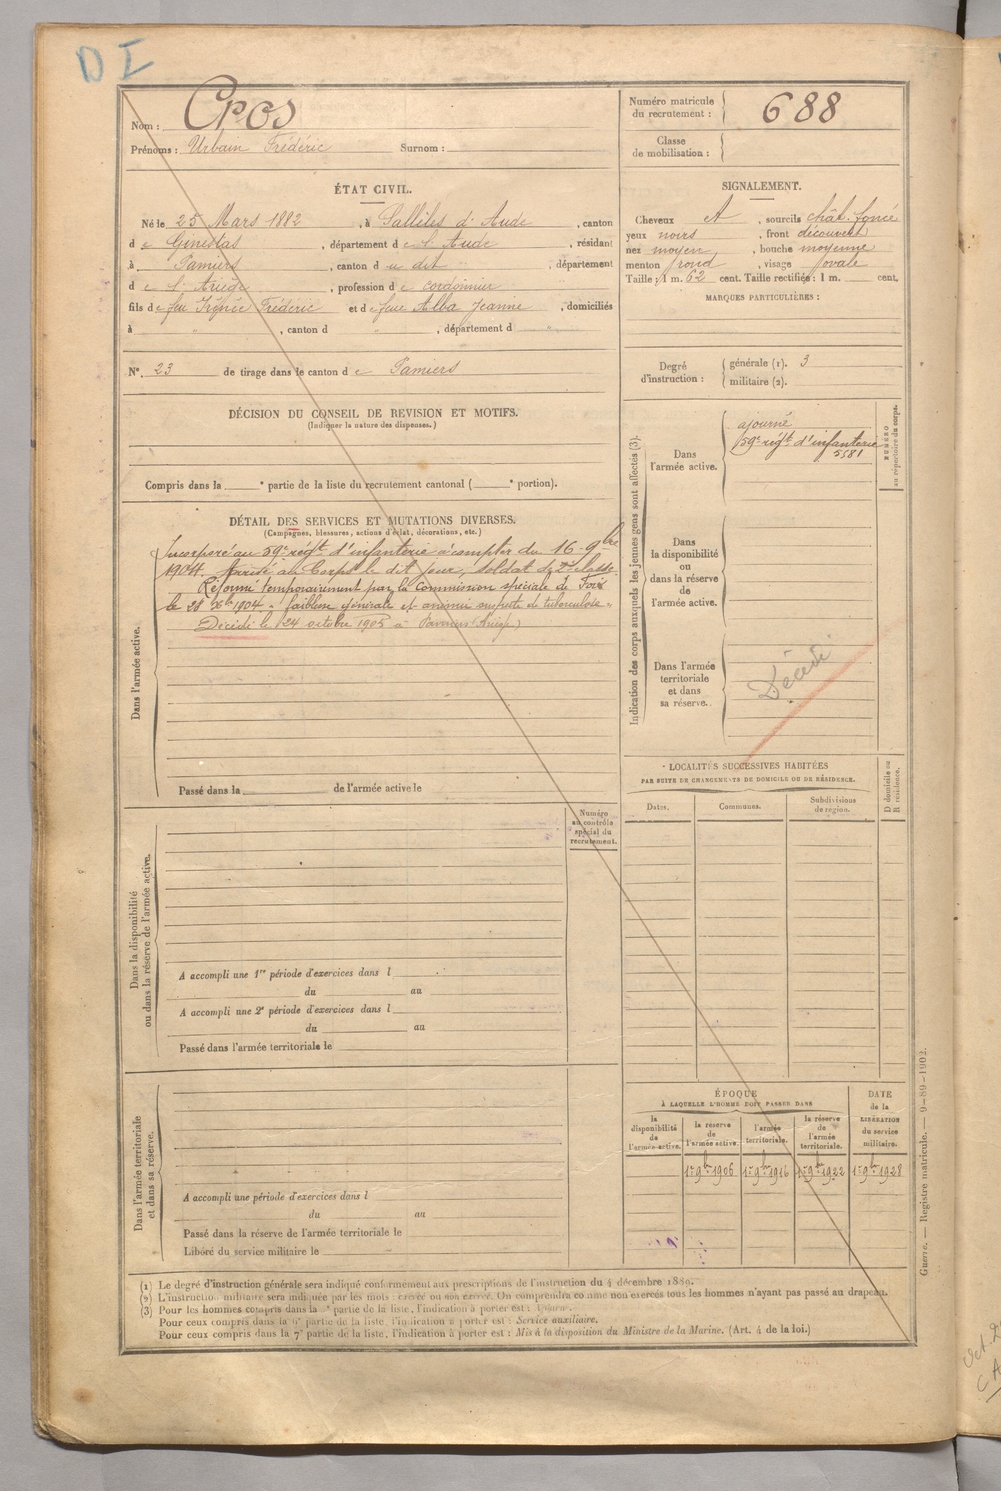 D I
Nom : Cros
Prénoms : Urbain Frédéric Surnom :
Numéro matricule du recrutement : 688
Classe de mobilisation :
ÉTAT CIVIL.
Né le 25 Mars 1882, à Sallèles d'Aude, canton
de Ginestas, département de l'Aude, résidant
à Pamiers, canton du dit, département
de l'Ariège, profession de cordonnier
fils de feu Irénée Frédéric et de feue Alba Jeanne, domiciliés
à " , canton d " , département d "
N°. 23 de tirage dans le canton de Pamiers
SIGNALEMENT.
Cheveux et, sourcils chât. foncé
yeux noirs, front découvert
nez moyen, bouche moyenne
menton rond, visage ovale
Taille : 1 m. 62 cent. Taille rectifiée : 1 m. cent.
MARQUES PARTICULIÈRES :
Degré d'instruction :
générale (1). 3
militaire (2).
DÉCISION DU CONSEIL DE REVISION ET MOTIFS.
(Indiquer la nature des dispenses.)
Compris dans la e partie de la liste du recrutement cantonal ( e portion).
DÉTAIL DES SERVICES ET MUTATIONS DIVERSES.
(Campagnes, blessures, actions d'éclat, décorations, etc.)
Dans l'armée active.
Incorporé au 59e régt d'infanterie à compter du 16 9bre
1904. Arrivé au Corps le dit jour, soldat de 2e classe.
Réformé temporairement par la Commission spéciale de Foix
le 28 Xbre 1904 " faiblesse générale et anémie suspecte de tuberculose "
Décédé le 24 octobre 1905 à Pamiers (Ariège)
Passé dans la de l'armée active le
Indication des corps auxquels les jeunes gens sont affectés (3).
NUMÉRO au répertoire du corps.
Dans l'armée active.
ajourné
59e régt d'infanterie
5581
Dans la disponibilité ou dans la réserve de l'armée active.
Dans l'armée territoriale et dans sa réserve.
Décédé
LOCALITÉS SUCCESSIVES HABITÉES
PAR SUITE DE CHANGEMENTS DE DOMICILE OU DE RÉSIDENCE.
Dates. Communes. Subdivisions de région. D domicile ou R résidence.
Numéro au contrôle spécial du recrutement.
Dans la disponibilité ou dans la réserve de l'armée active.
A accompli une 1re période d'exercices dans l
du au
A accompli une 2e période d'exercices dans l
du au
Passé dans l'armée territoriale le
Dans l'armée territoriale et dans sa réserve.
A accompli une période d'exercices dans l
du au
Passé dans la réserve de l'armée territoriale le
Libéré du service militaire le
ÉPOQUE
À LAQUELLE L'HOMME DOIT PASSER DANS
la disponibilité de l'armée active. la réserve de l'armée active. l'armée territoriale. la réserve de l'armée territoriale. DATE de la LIBÉRATION du service militaire.
1er 9bre 1906 1er 9bre 1916 1er 9bre 1922 1er 9bre 1928
(1) Le degré d'instruction générale sera indiqué conformément aux prescriptions de l'instruction du 4 décembre 1889.
(2) L'instruction militaire sera indiquée par les mots : exercé ou non exercé. On comprendra comme non exercés tous les hommes n'ayant pas passé au drapeau.
(3) Pour les hommes compris dans la partie de la liste, l'indication à porter est : Ajourné.
Pour ceux compris dans la 6e partie de la liste, l'indication à porter est : Service auxiliaire.
Pour ceux compris dans la 7e partie de la liste, l'indication à porter est : Mis à la disposition du Ministre de la Marine. (Art. 4 de la loi.)
Guerre. — Registre matricule. — 9-89-1902.